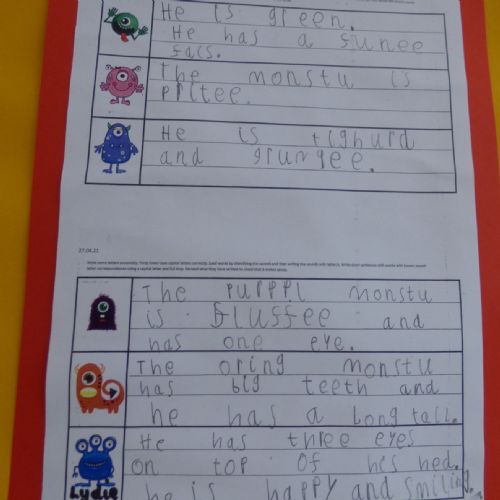 He is green.
He has a funee
fais.
The monstu is
pritee.
He is tighurd
and grungee.
27.04.21
The purppl monstu
is fluffee and
has one eye.
The oring monstu
has big teeth and
he has a long tall.
He has three eyes
on top of his hed.
he is happy and smiling.
Lydie